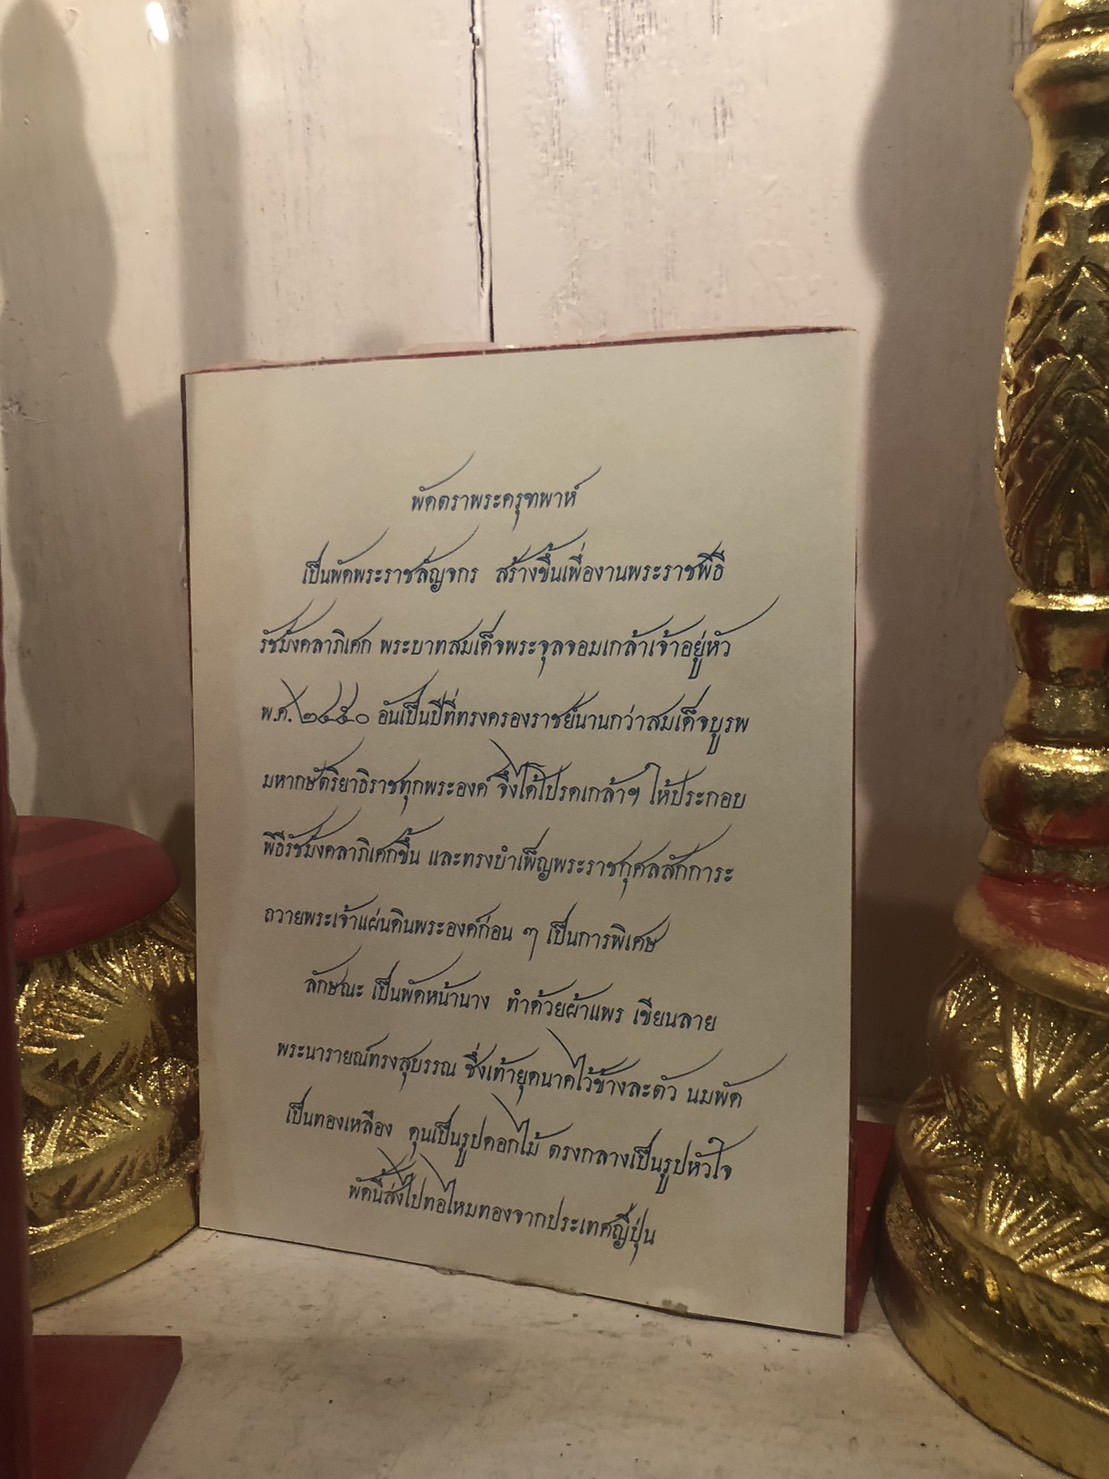 พัดตราพระครุฑพาห์
เป็นพัดพระราชลัญจกร สร้างขึ้นเพื่องานพระราชพิธี
รัชมังคลาภิเศก พระบาทสมเด็จพระจุลจอมเกล้าเจ้าอยู่หัว
พ.ศ. ๒๔๕๐ อันเป็นปีที่ทรงครองราชย์นานกว่าสมเด็จบูรพ
มหากษัตริยาธิราชทุกพระองค์ จึงได้โปรดเกล้าฯ ให้ประกอบ
พิธีรัชมังคลาภิเศกขึ้น และทรงบำเพ็ญพระราชกุศลสักการะ
ถวายพระเจ้าแผ่นดินพระองค์ก่อน ๆ เป็นการพิเศษ
ลักษณะ เป็นพัดหน้านาง ทำด้วยผ้าแพร เขียนลาย
พระนารายณ์ทรงสุบรรณ ซึ่งเท้ายุดนาคไว้ข้างละตัว นมพัด
เป็นทองเหลือง ดุนเป็นรูปดอกไม้ ตรงกลางเป็นรูปหัวใจ
พัดนี้ส่งไปทอไหมทองจากประเทศญี่ปุ่น